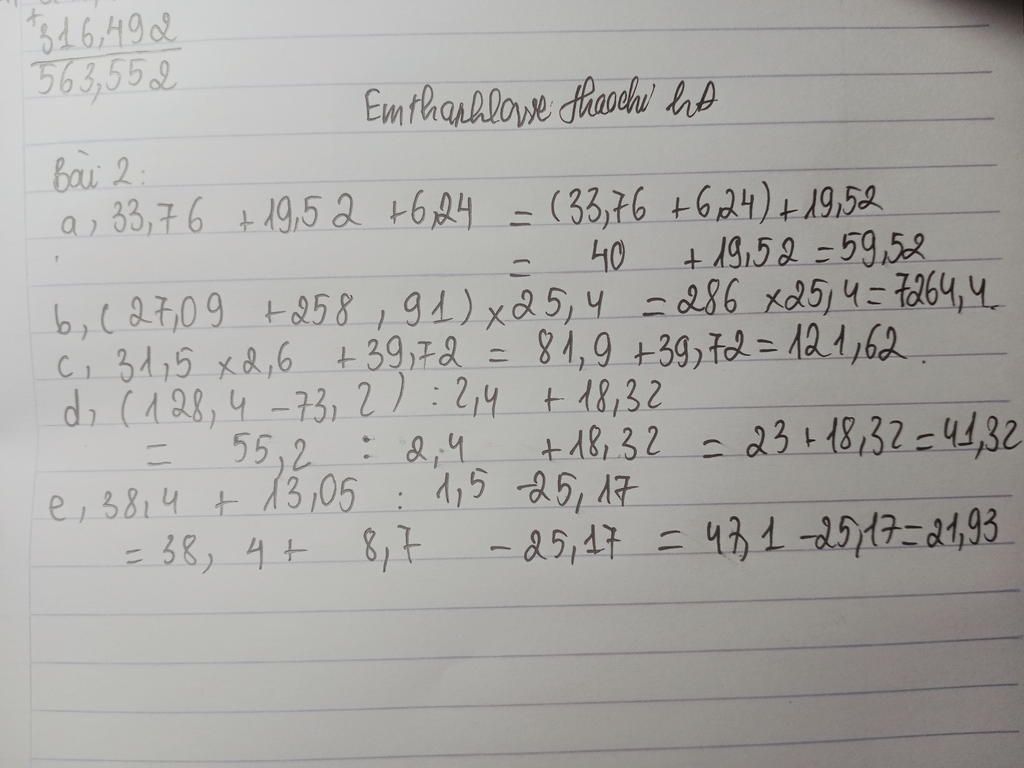 +
316,492
563,552
Bài 2:
a, 33,76 + 19,52 + 6,24 = (33,76 + 6,24) + 19,52
= 40 + 19,52 = 59,52
b, (27,09 + 258, 91) × 25,4 = 286 × 25,4 = 7264,4
c, 31,5 × 2,6 + 39,72 = 81,9 + 39,72 = 121,62.
d, (128,4 - 73,2) : 2,4 + 18,32
= 55,2 : 2,4 + 18,32 = 23 + 18,32 = 41,32
e, 38,4 + 13,05 : 1,5 - 25,17
= 38, 4 + 8,7 - 25,17 = 47,1 - 25,17 = 21,93